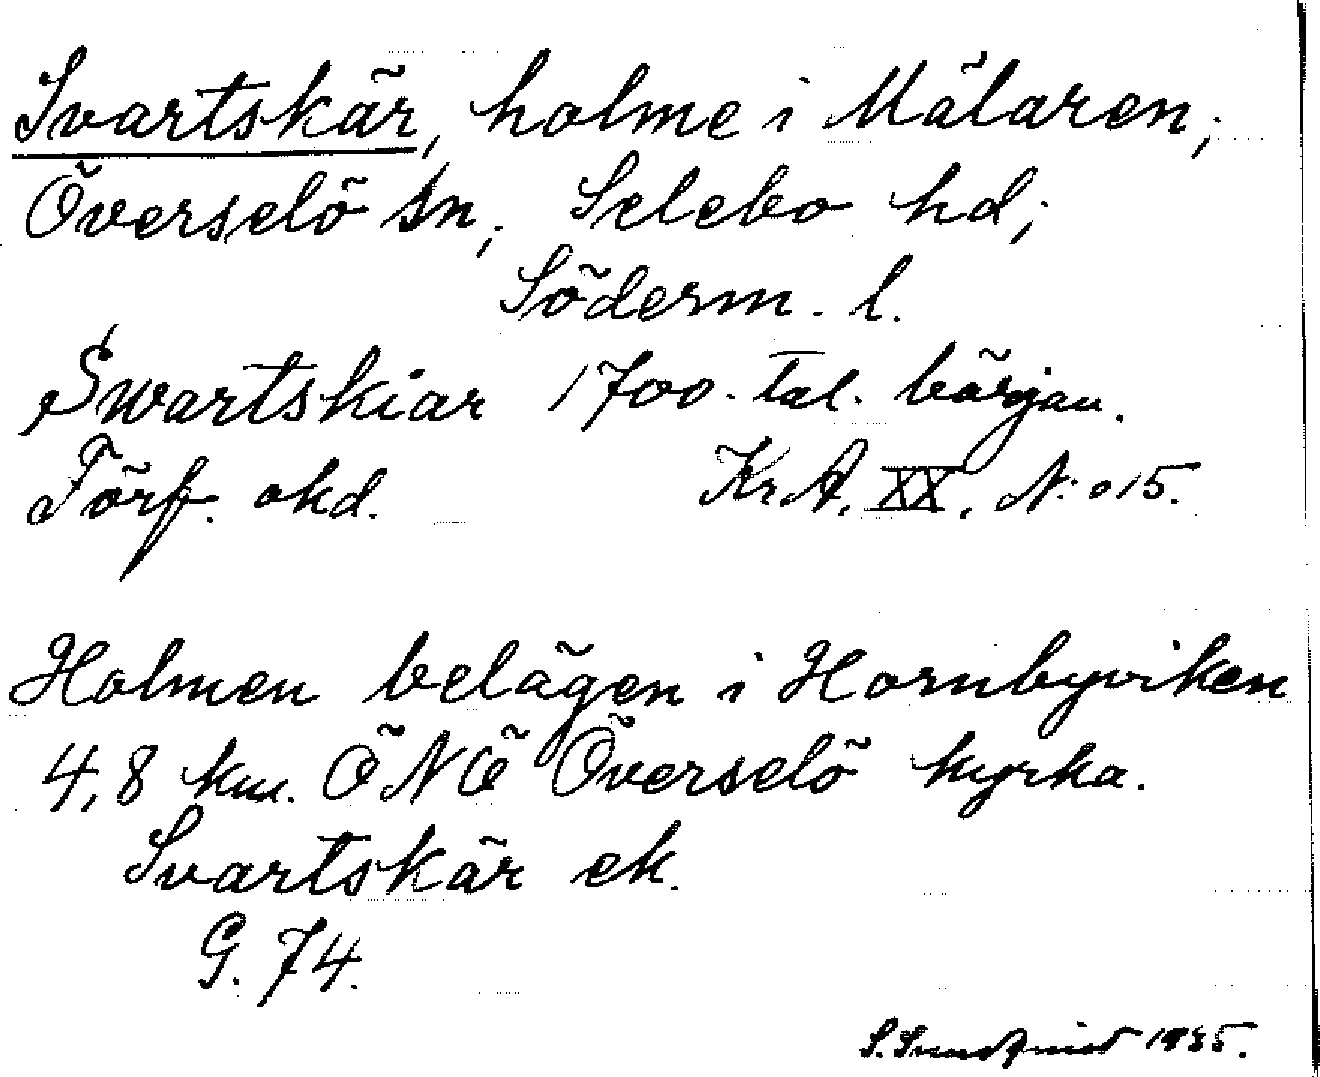 Svartskär, holme i Mälaren;
Överselö sn; Selebo hd;
Söderm. l.
Swartskiar 1700-tal. börjau.
Förf. okd. Kr.A. XX. N:o 15.
Holmen belägen i Hornbyviken
4,8 km. ÖNÖ Överselö kyrka.
Svartskär ek.
G. 74.
S. 1935.